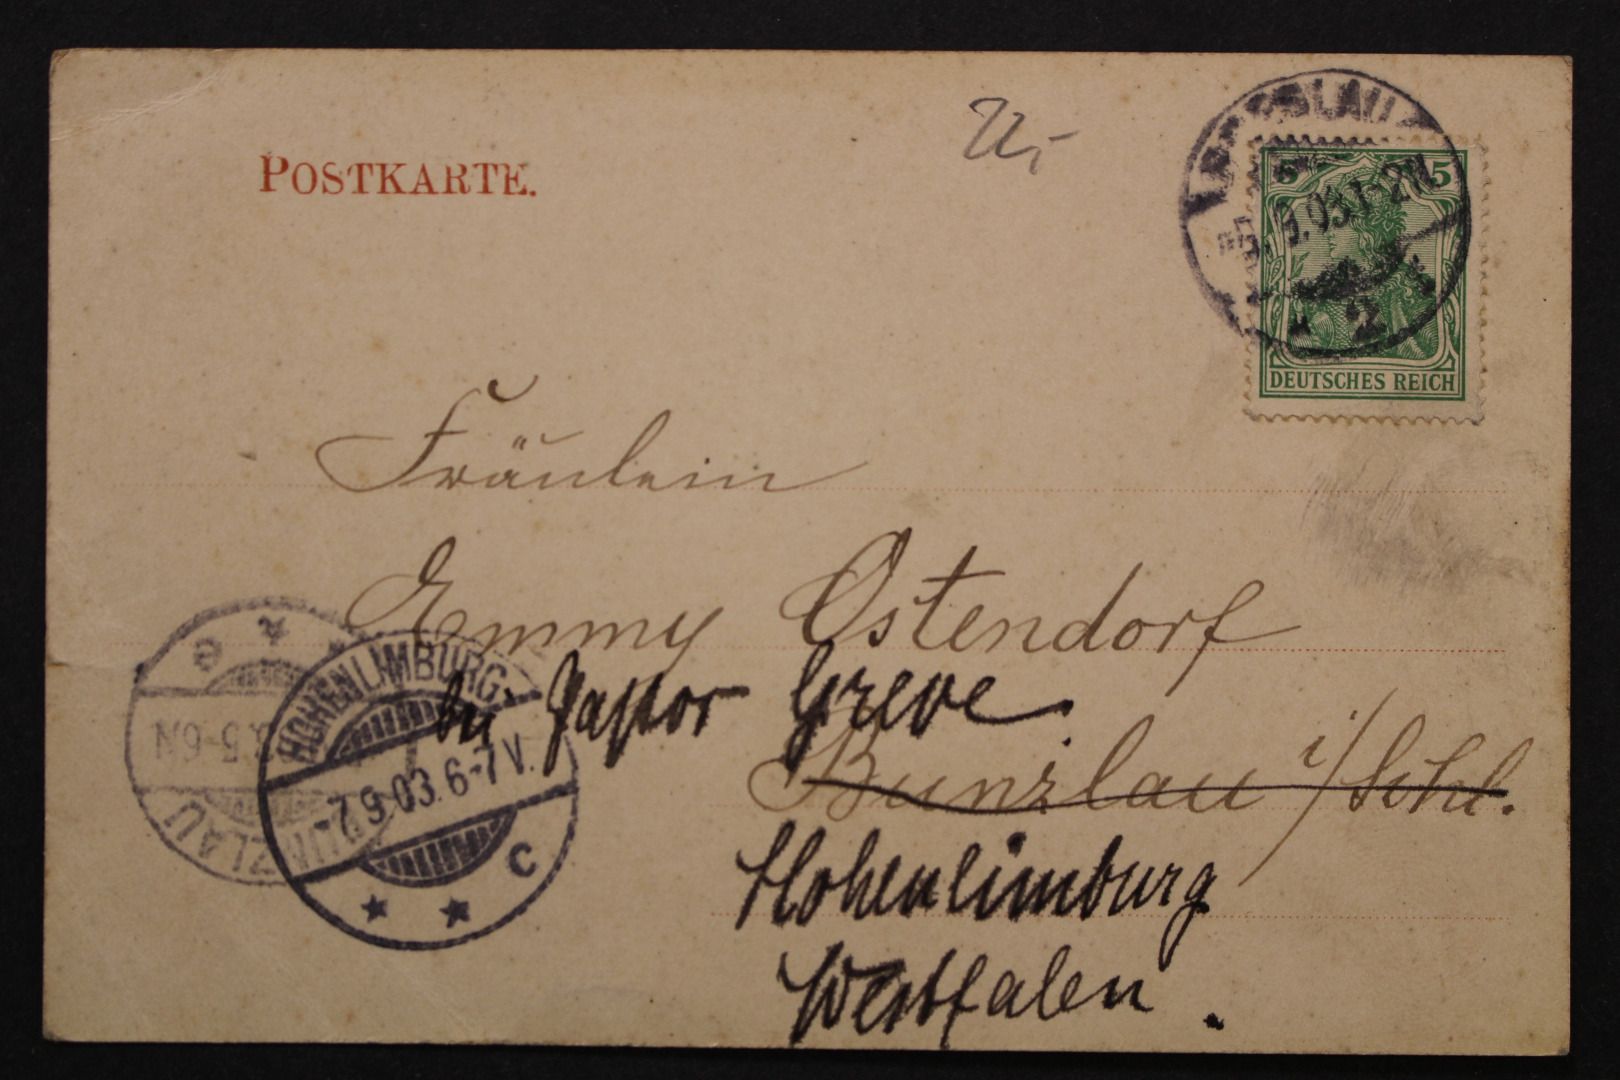 POSTKARTE.
5
5.9.03.1-2N.
2
DEUTSCHES REICH
Fräulein
Emmy Ostendorf
bei Pastor Greve.
Bunzlau i/Schl.
Hohenlimburg
Westfalen.
HOHENLIMBURG.
7.9.03.6-7V.
C
BUNZLAU
5-6N
e